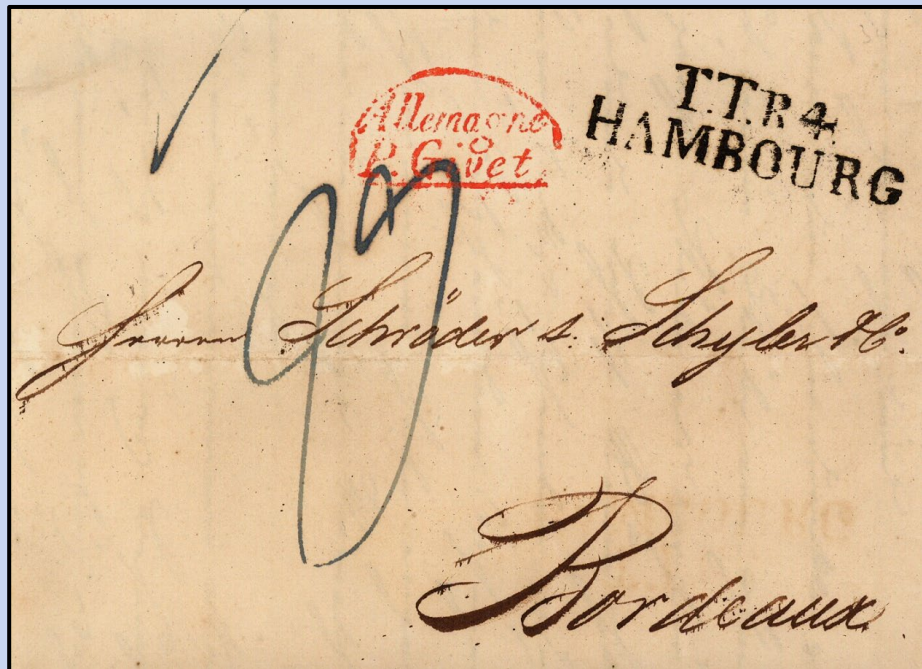 Allemagne
P. Givet
T.T.R.4.
HAMBOURG
Herren Schröder & Schyler & Co.
Bordeaux